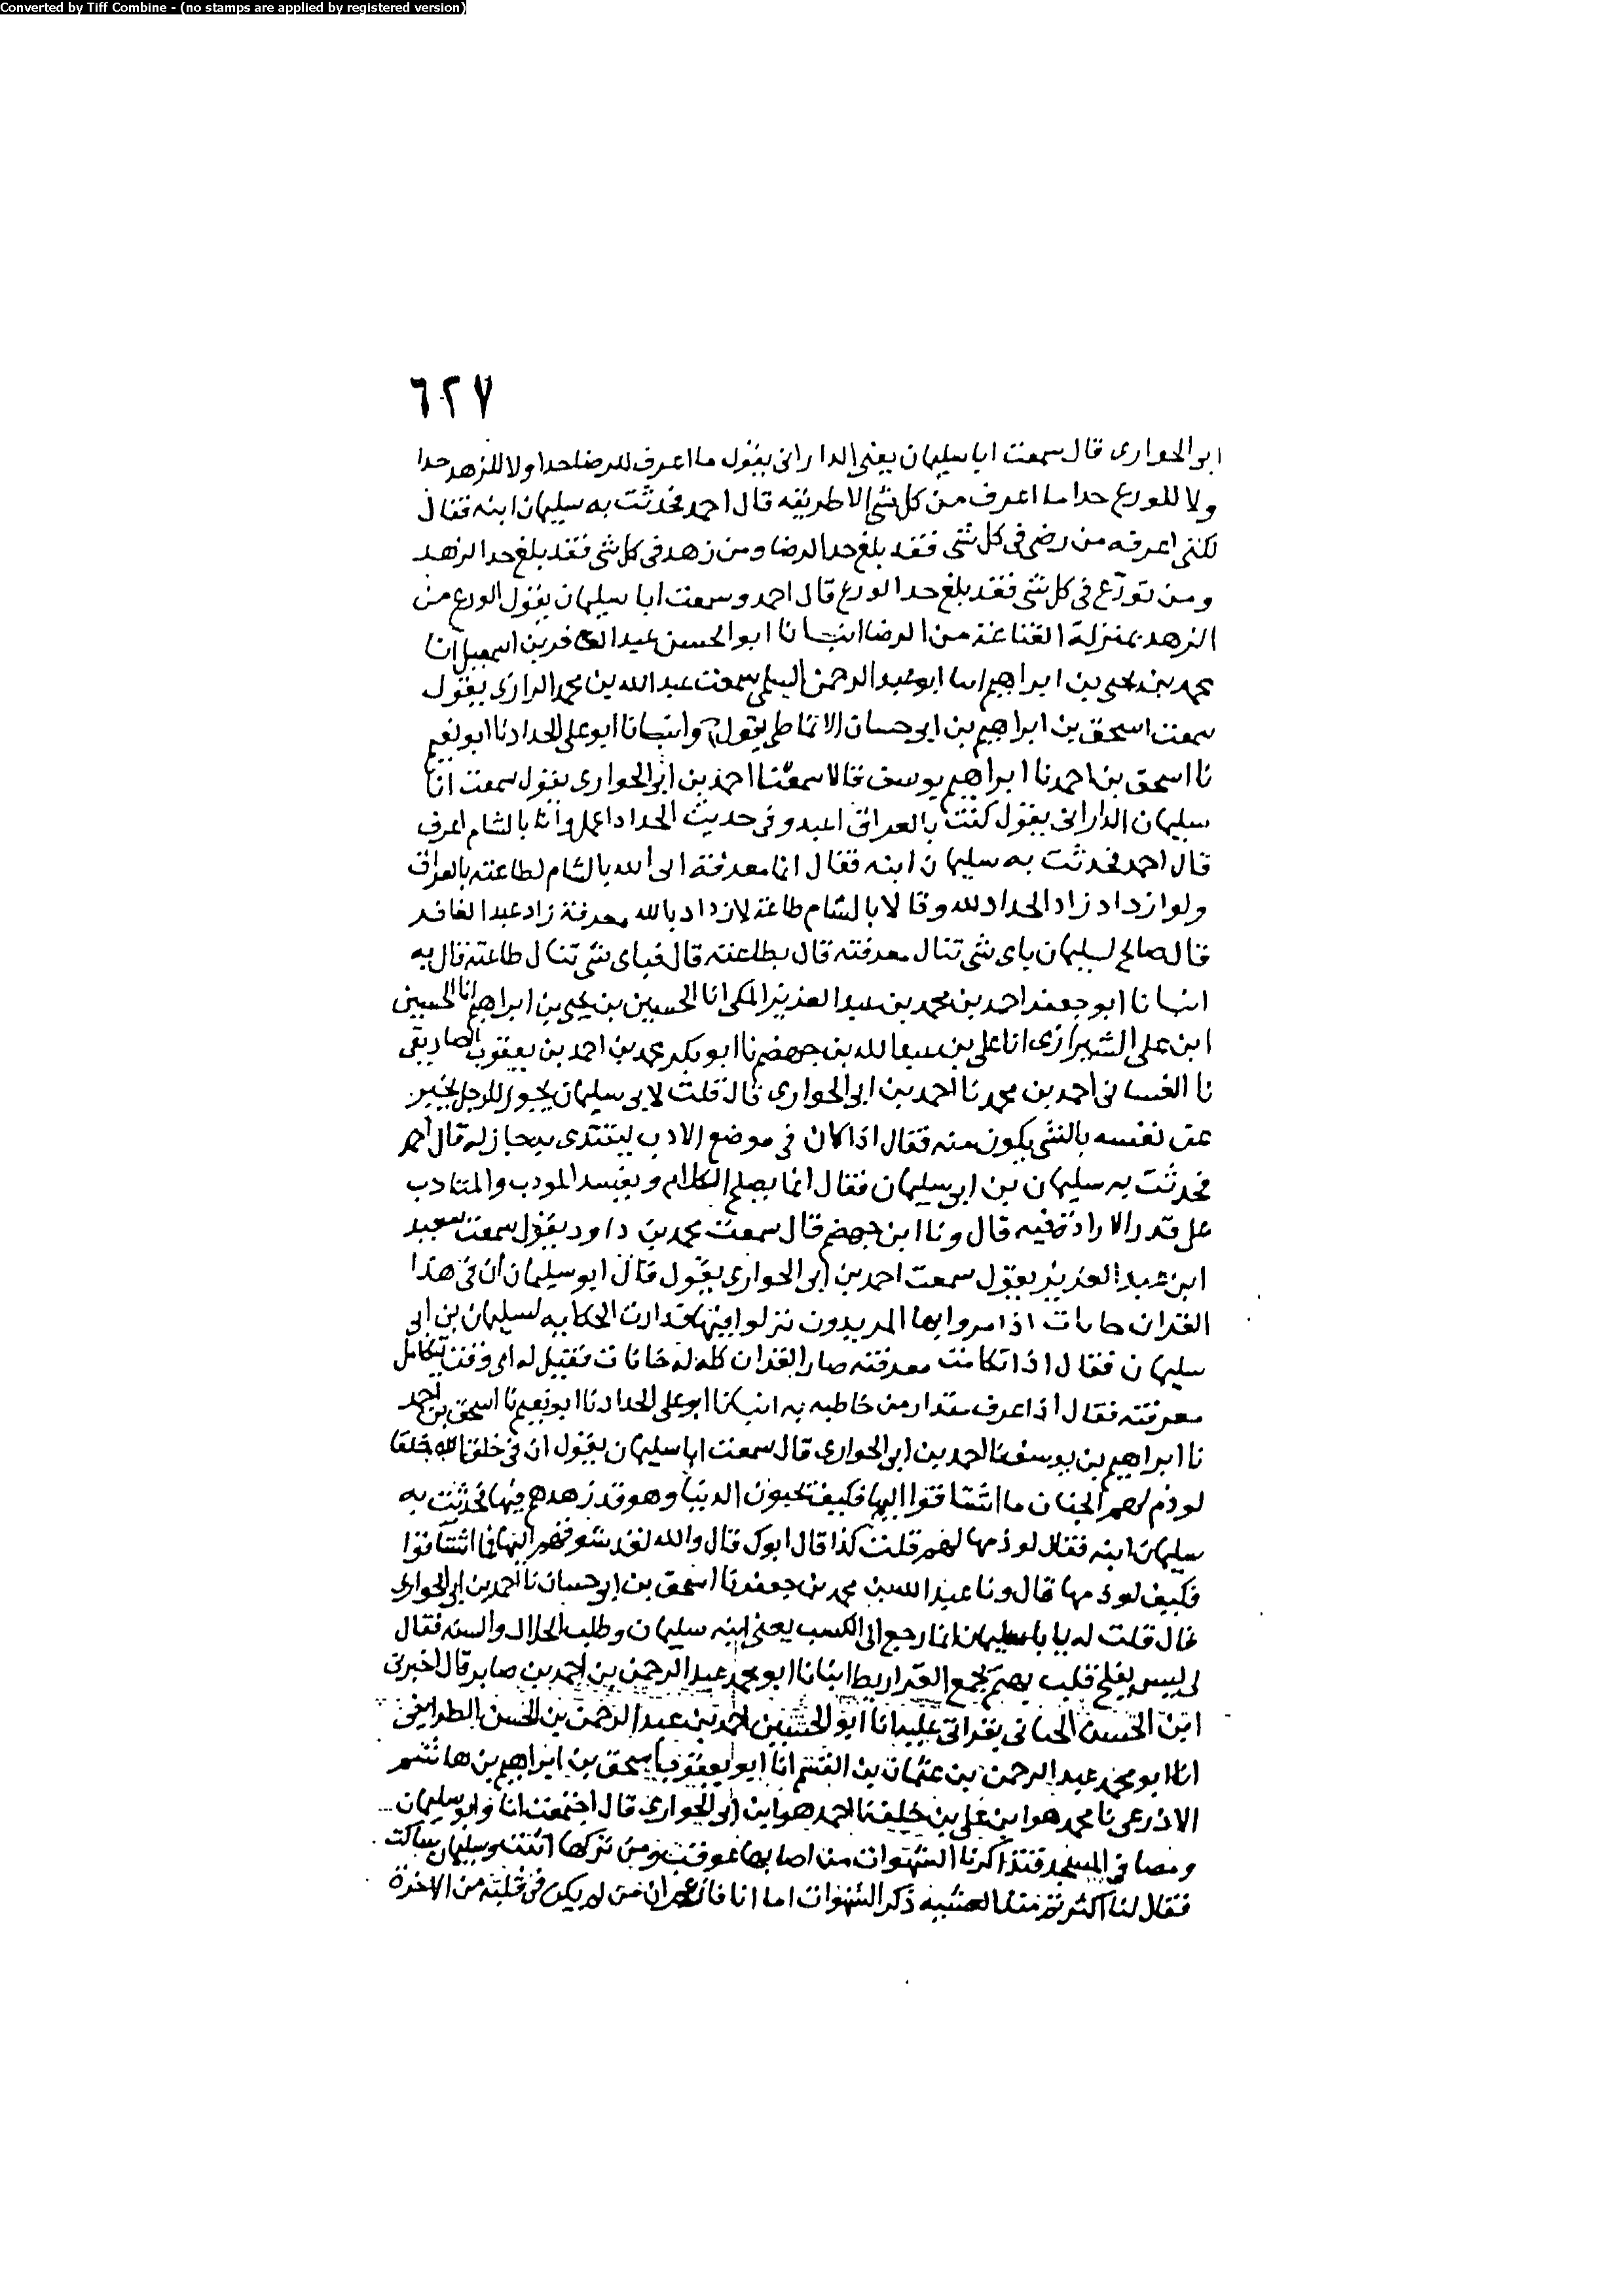 Converted by Tiff Combine - (no stamps are applied by registered version)
٦٢٧
ابى الحوارى قال سمعت ابا سليمان يعنى الدارانى يقول ما اعرف للرضا حدا ولا للزهد حدا
ولا للورع حدا ما اعرف من كل شئ الا طريقه قال احمد فحدثت به سليمان ابنه فقال
لكنى اعرفه من رضى فى كل شئ فقد بلغ حد الرضا ومن زهد فى كل شئ فقد بلغ حد الزهد
ومن تورّع فى كل شئ فقد بلغ حد الورع قال احمد وسمعت ابا سليمان يقول الورع من
الزهد بمنزلة القناعة من الرضا انبانا ابو الحسن عبد الغافر بن اسمعيل انا
محمد بن يحيى بن ابراهيم انا ابو عبد الرحمن السلمى سمعت عبد الله بن محمد الرازى يقول
سمعت اسحق بن ابراهيم بن ابى حسان الانماطى يقول وانبانا ابو على الحداد نا ابو نعيم
نا اسحق بن احمد نا ابراهيم يوسف قالا سمعنا احمد بن ابى الحوارى يقول سمعت ابا
سليمان الدارانى يقول كنت بالعراق اعبد وفى حديث الحداد اعمل وانا بالشام اعرف
قال احمد فحدثت به سليمان ابنه فقال انما معرفة ابى الله بالشام لطاعته بالعراق
ولو ازداد زاد الحداد لله وقالا بالشام طاعة لازداد بالله معرفة زاد عبد الغافر
قال صالح لسليمان باى شئ تنال معرفته قال بطاعته قال فباى شئ تنال طاعته قال به
انبانا ابو جعفر احمد بن محمد بن عبد العزيز المكى انا الحسين بن يحيى بن ابراهيم انا الحسين
ابن على الشيرازى انا على بن عبد الله بن جهضم نا ابو بكر محمد بن احمد بن يعقوب
نا الغسانى احمد بن محمد نا احمد بن ابى الحوارى قال قلت لابى سليمان يجوز للرجل يخبر
عن نفسه بالشئ يكون منه فقال اذا كان فى موضع الادب ليقتدى به جاز له قال احمد
فحدثت به سليمان بن ابى سليمان فقال انما يصلح الكلام ويفسد المودب والمتادب
على قدر الارادة فيه قال ونا ابن جهضم قال سمعت محمد بن داود يقول سمعت سعيد
ابن عبد العزيز يقول سمعت احمد بن ابى الحوارى يقول قال ابو سليمان ان فى هذا
القران خانات اذا مروا بها المريدون نزلوا فيها الحكايه لسليمان بن ابى
سليمان فقال اذا تكاملت معرفته صار القران كله له خانات فقيل له اى وقت تتكامل
معرفته فقال اذا عرف مقدار من خاطبه به انبانا ابو على الحداد نا ابو نعيم نا اسحق بن احمد
نا ابراهيم بن يوسف نا احمد بن ابى الحوارى قال سمعت ابا سليمان يقول ان فى خلق الله خلقا
لو ذم لهم الجنان ما اشتاقوا اليها فكيف يحبون الدنيا وهو قد زهدهم فيها فحدثت به
سليمان ابنه فقال لو ذمها لهم قلت كذا قال ابوك قال والله لقد شوقهم اليها فما اشتاقوا
فكيف لو ذمها قال ونا عبد الله بن محمد بن جعفر نا اسحق بن ابى حسان نا احمد بن ابى الحوارى
قال قلت له يا با سليمان انما رجع الى الكسب يعنى ابنه سليمان وطلب الحلال والسنه فقال
لى ليس يفلح قلب يهتم بجمع القراريط انبانا ابو محمد عبد الرحمن بن احمد بن صابر قال اخبرنى
ابن الحسن بقراتى عليه انا ابو الحسين احمد بن عبد الرحمن بن الحسن الطرايفى
انا ابو محمد عبد الرحمن بن عثمان بن القسم انا ابو يعقوب اسحق بن ابراهيم بن هاشم
الاذرعى نا محمد هو ابن على بن خلف نا احمد هو ابن ابى الحوارى قال اجتمعت انا وابو سليمان
ومضا فى المسجد فتذاكرنا الشهوات من اصابها عوقب ومن تركها اثيب وسليمان ساكت
فقال لنا اكثرتم منذ العشيه ذكر الشهوات اما انا فازعم ان من لم يكن فى قلبه من الاخرة